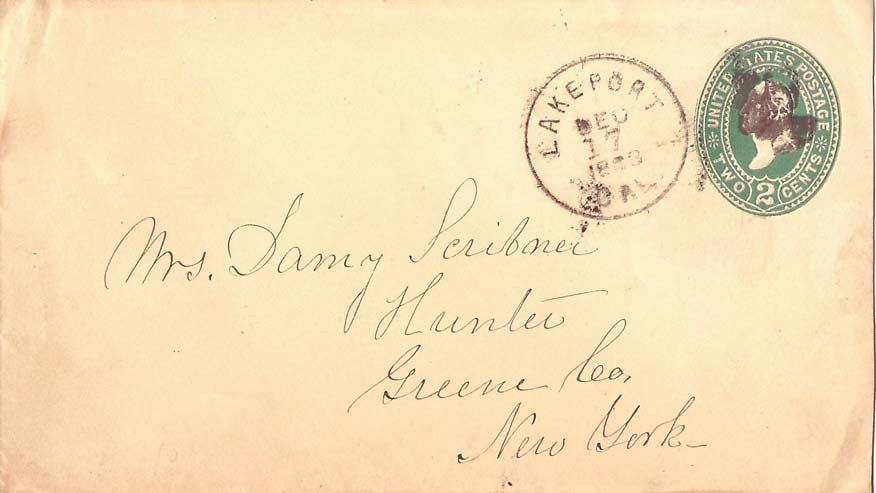 LAKEPORT
DEC
17
CAL.
UNITED STATES POSTAGE
TWO 2 CENTS
Mrs. Damy Scribner
Hunter
Greene Co.
New York